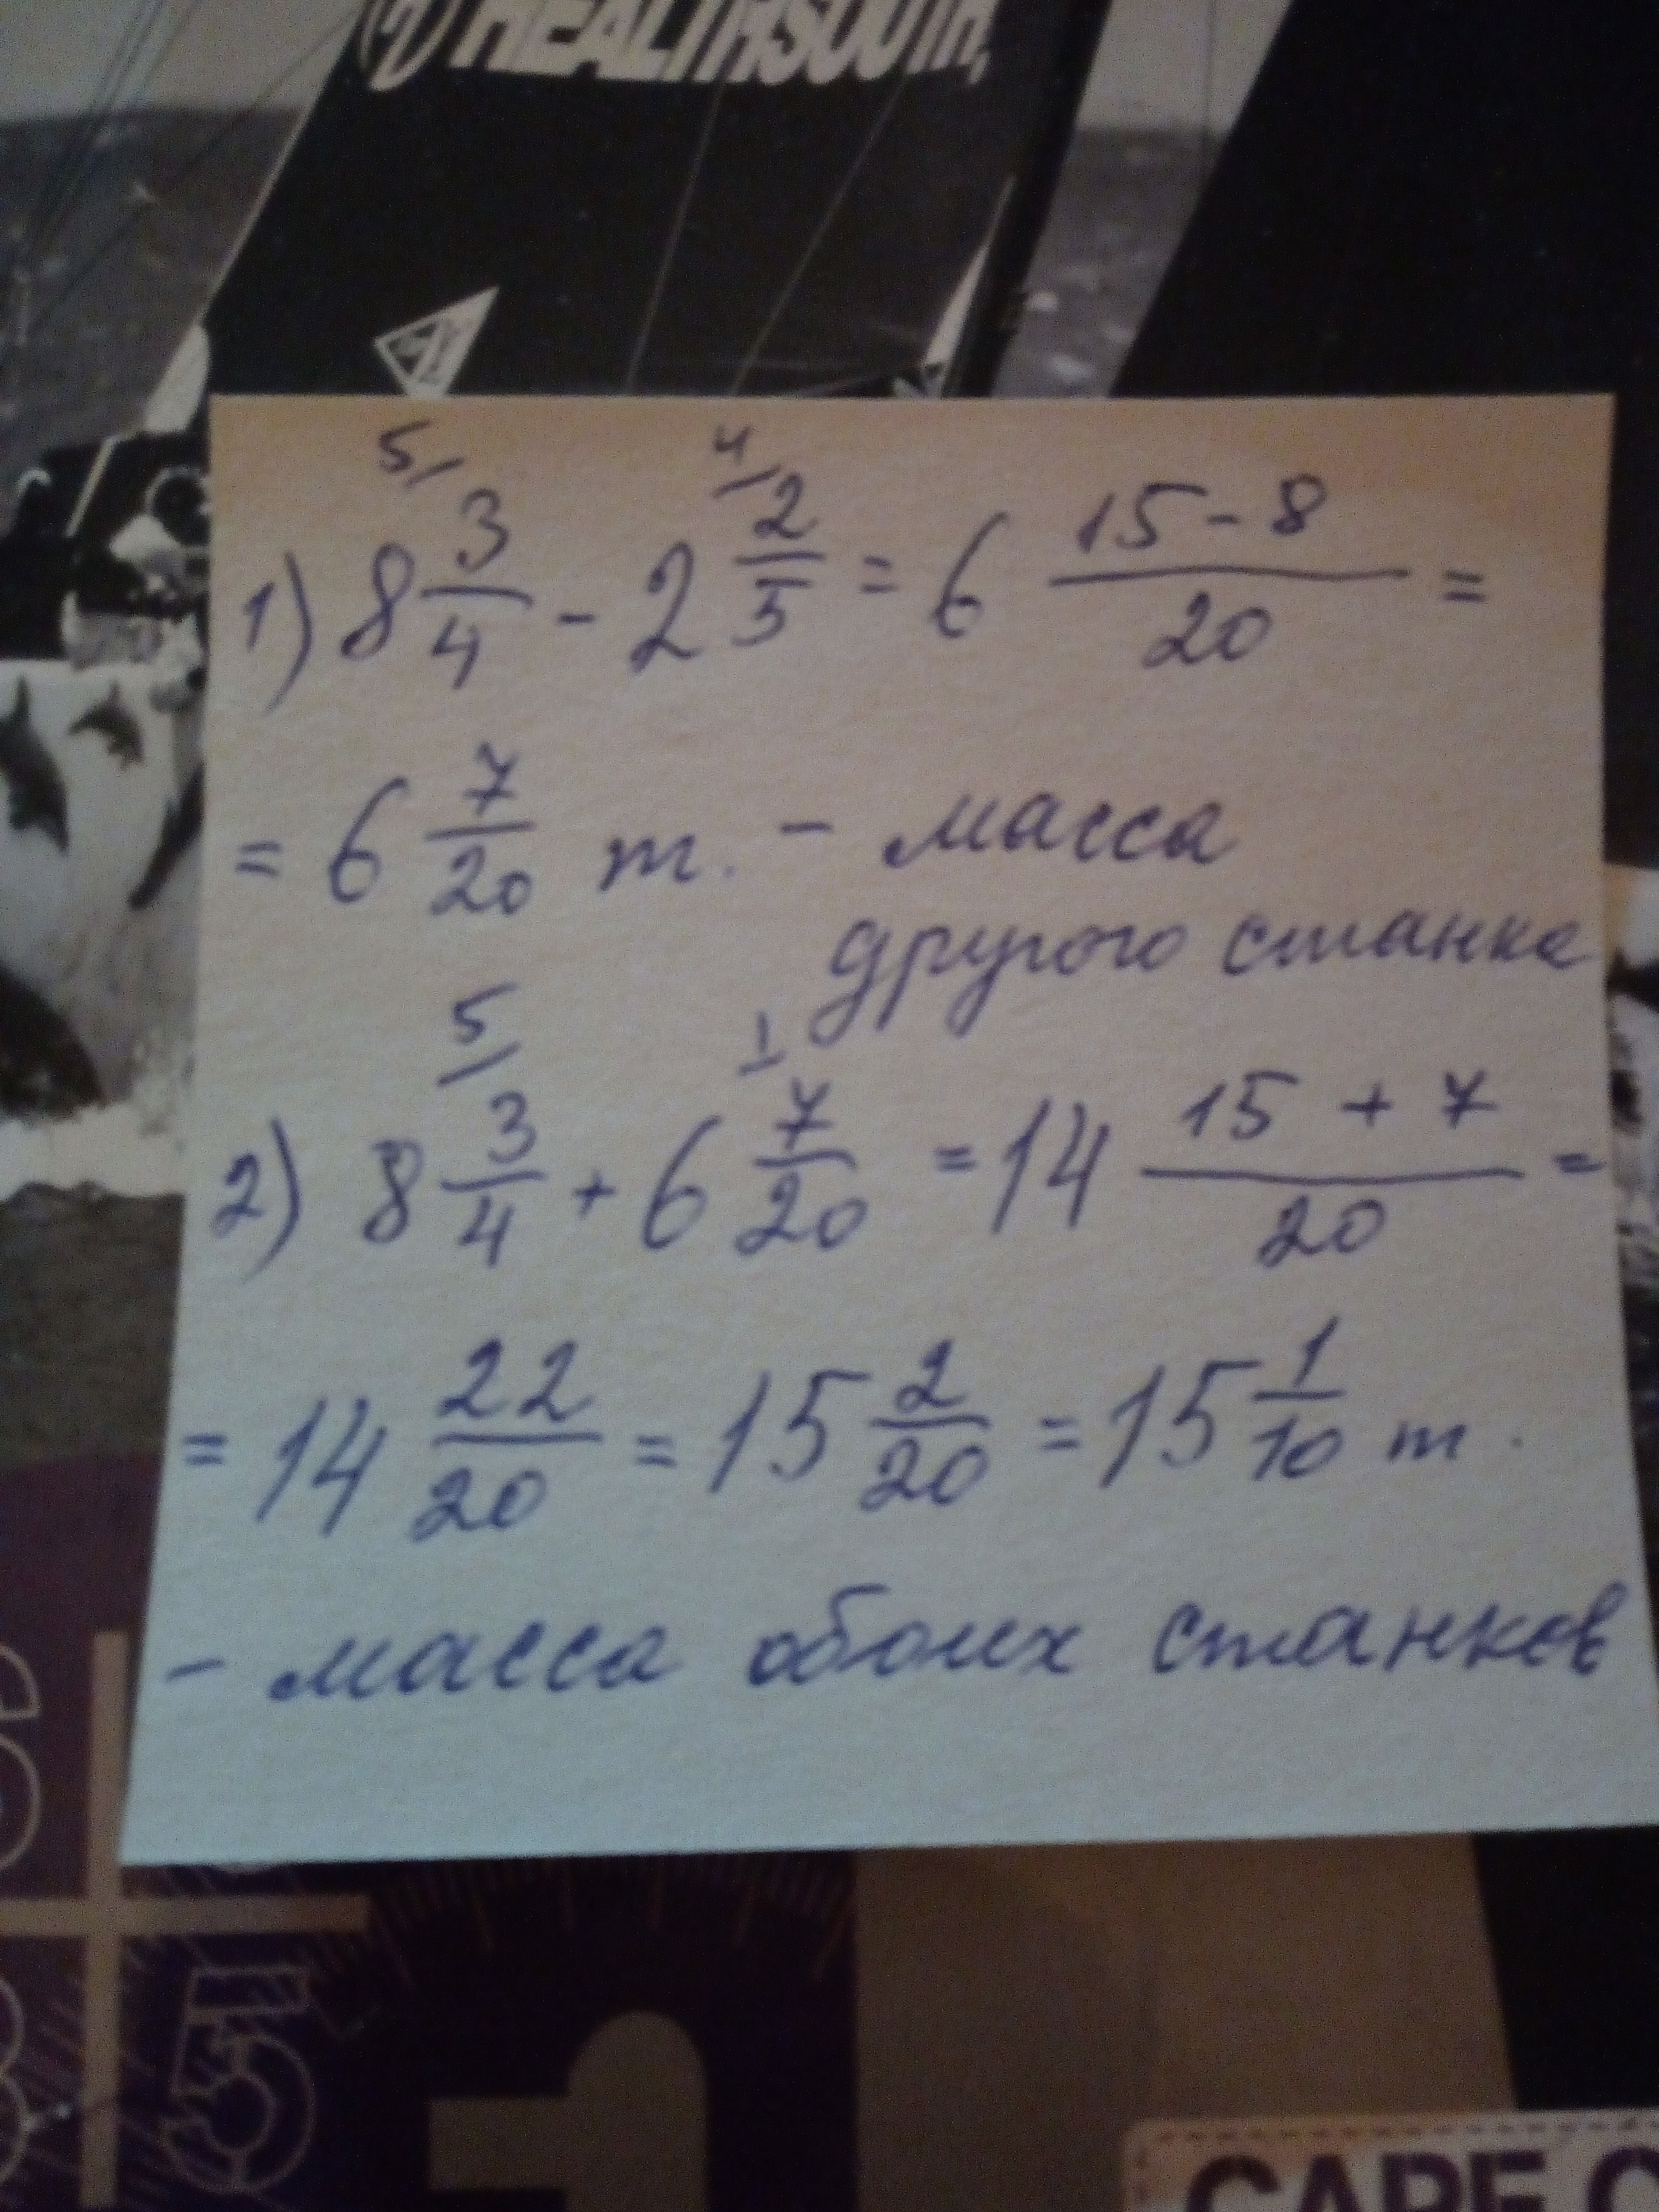 HEALTHSOUTH,
5/ 4/
1) 8 3/4 - 2 2/5 = 6 (15 - 8)/20 =
= 6 7/20 т. - масса
другого станка
5/ 1
2) 8 3/4 + 6 7/20 = 14 (15 + 7)/20 =
= 14 22/20 = 15 2/20 = 15 1/10 т.
- масса обоих станков
5
CAPE